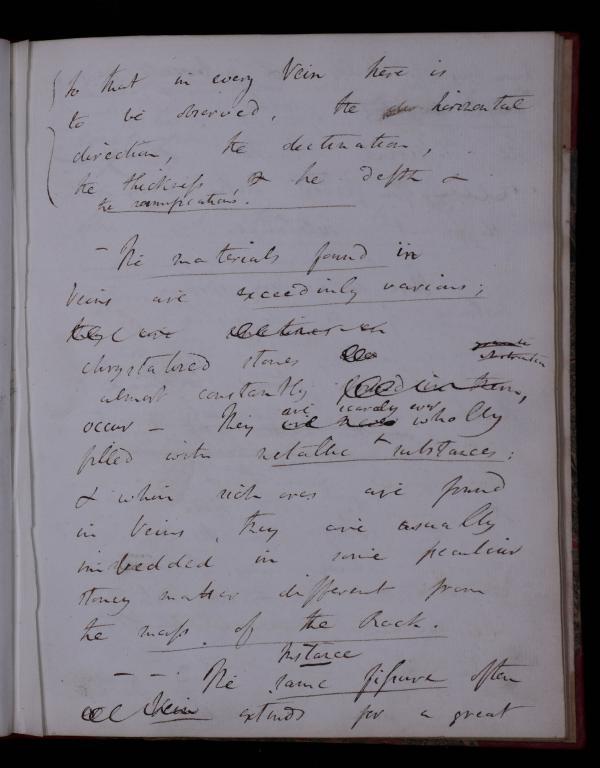 So that in every Vein there is
to be observed, the horizontal
direction, the declination,
the thickness & the depth &
the ramifications.
– The materials found in
Veins are exceedingly various;
they are
chrystalized stones
almost constantly found in them,
occur – They are scarcely ever wholly
filled with metallic substances;
& when rich ores are found
in Veins, they are usually
imbedded in some peculiar
stoney matter different from
the mass of the Rock.
Instance
– – The same fissure often
Vein extends for a great